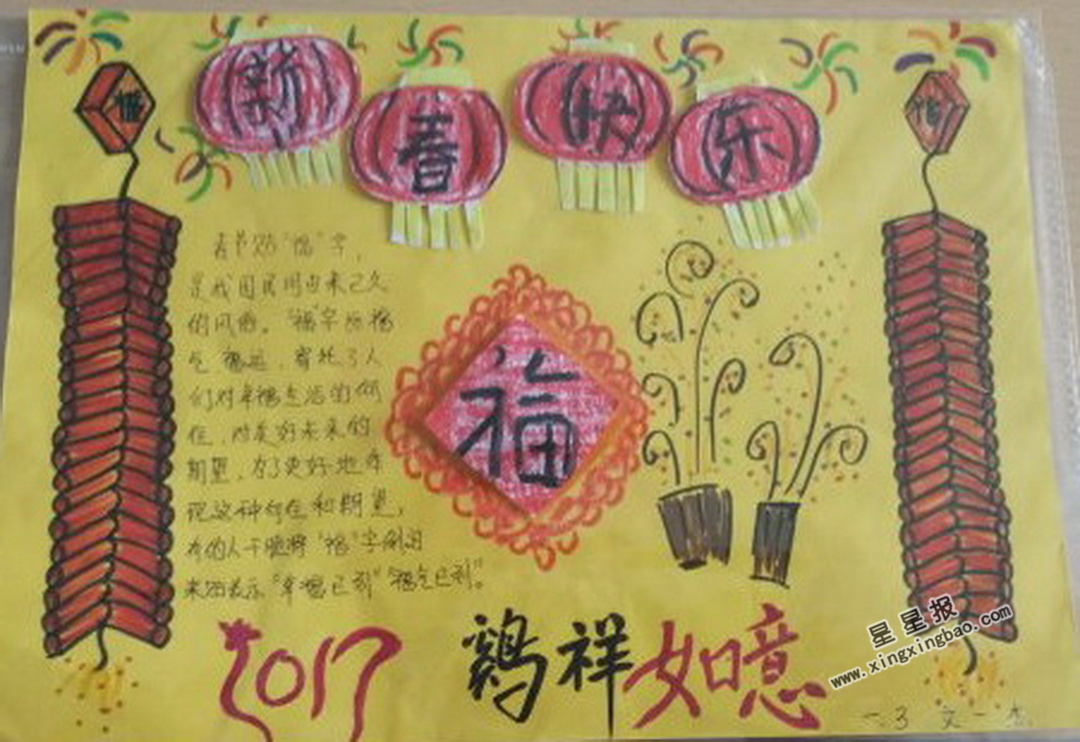 新春快乐
春节贴“福”字，
是我国民间由来已久
的风俗。“福”字指福
气 福运，寄托了人
们对幸福生活的向
往，对美好未来的
期望，为了更好地体
现这种向往和期望，
有的人干脆将“福”字倒过
来贴表示“幸福已到”“福气已到”。
福
2017 鸡祥如意
星星报
www.xingxingbao.com